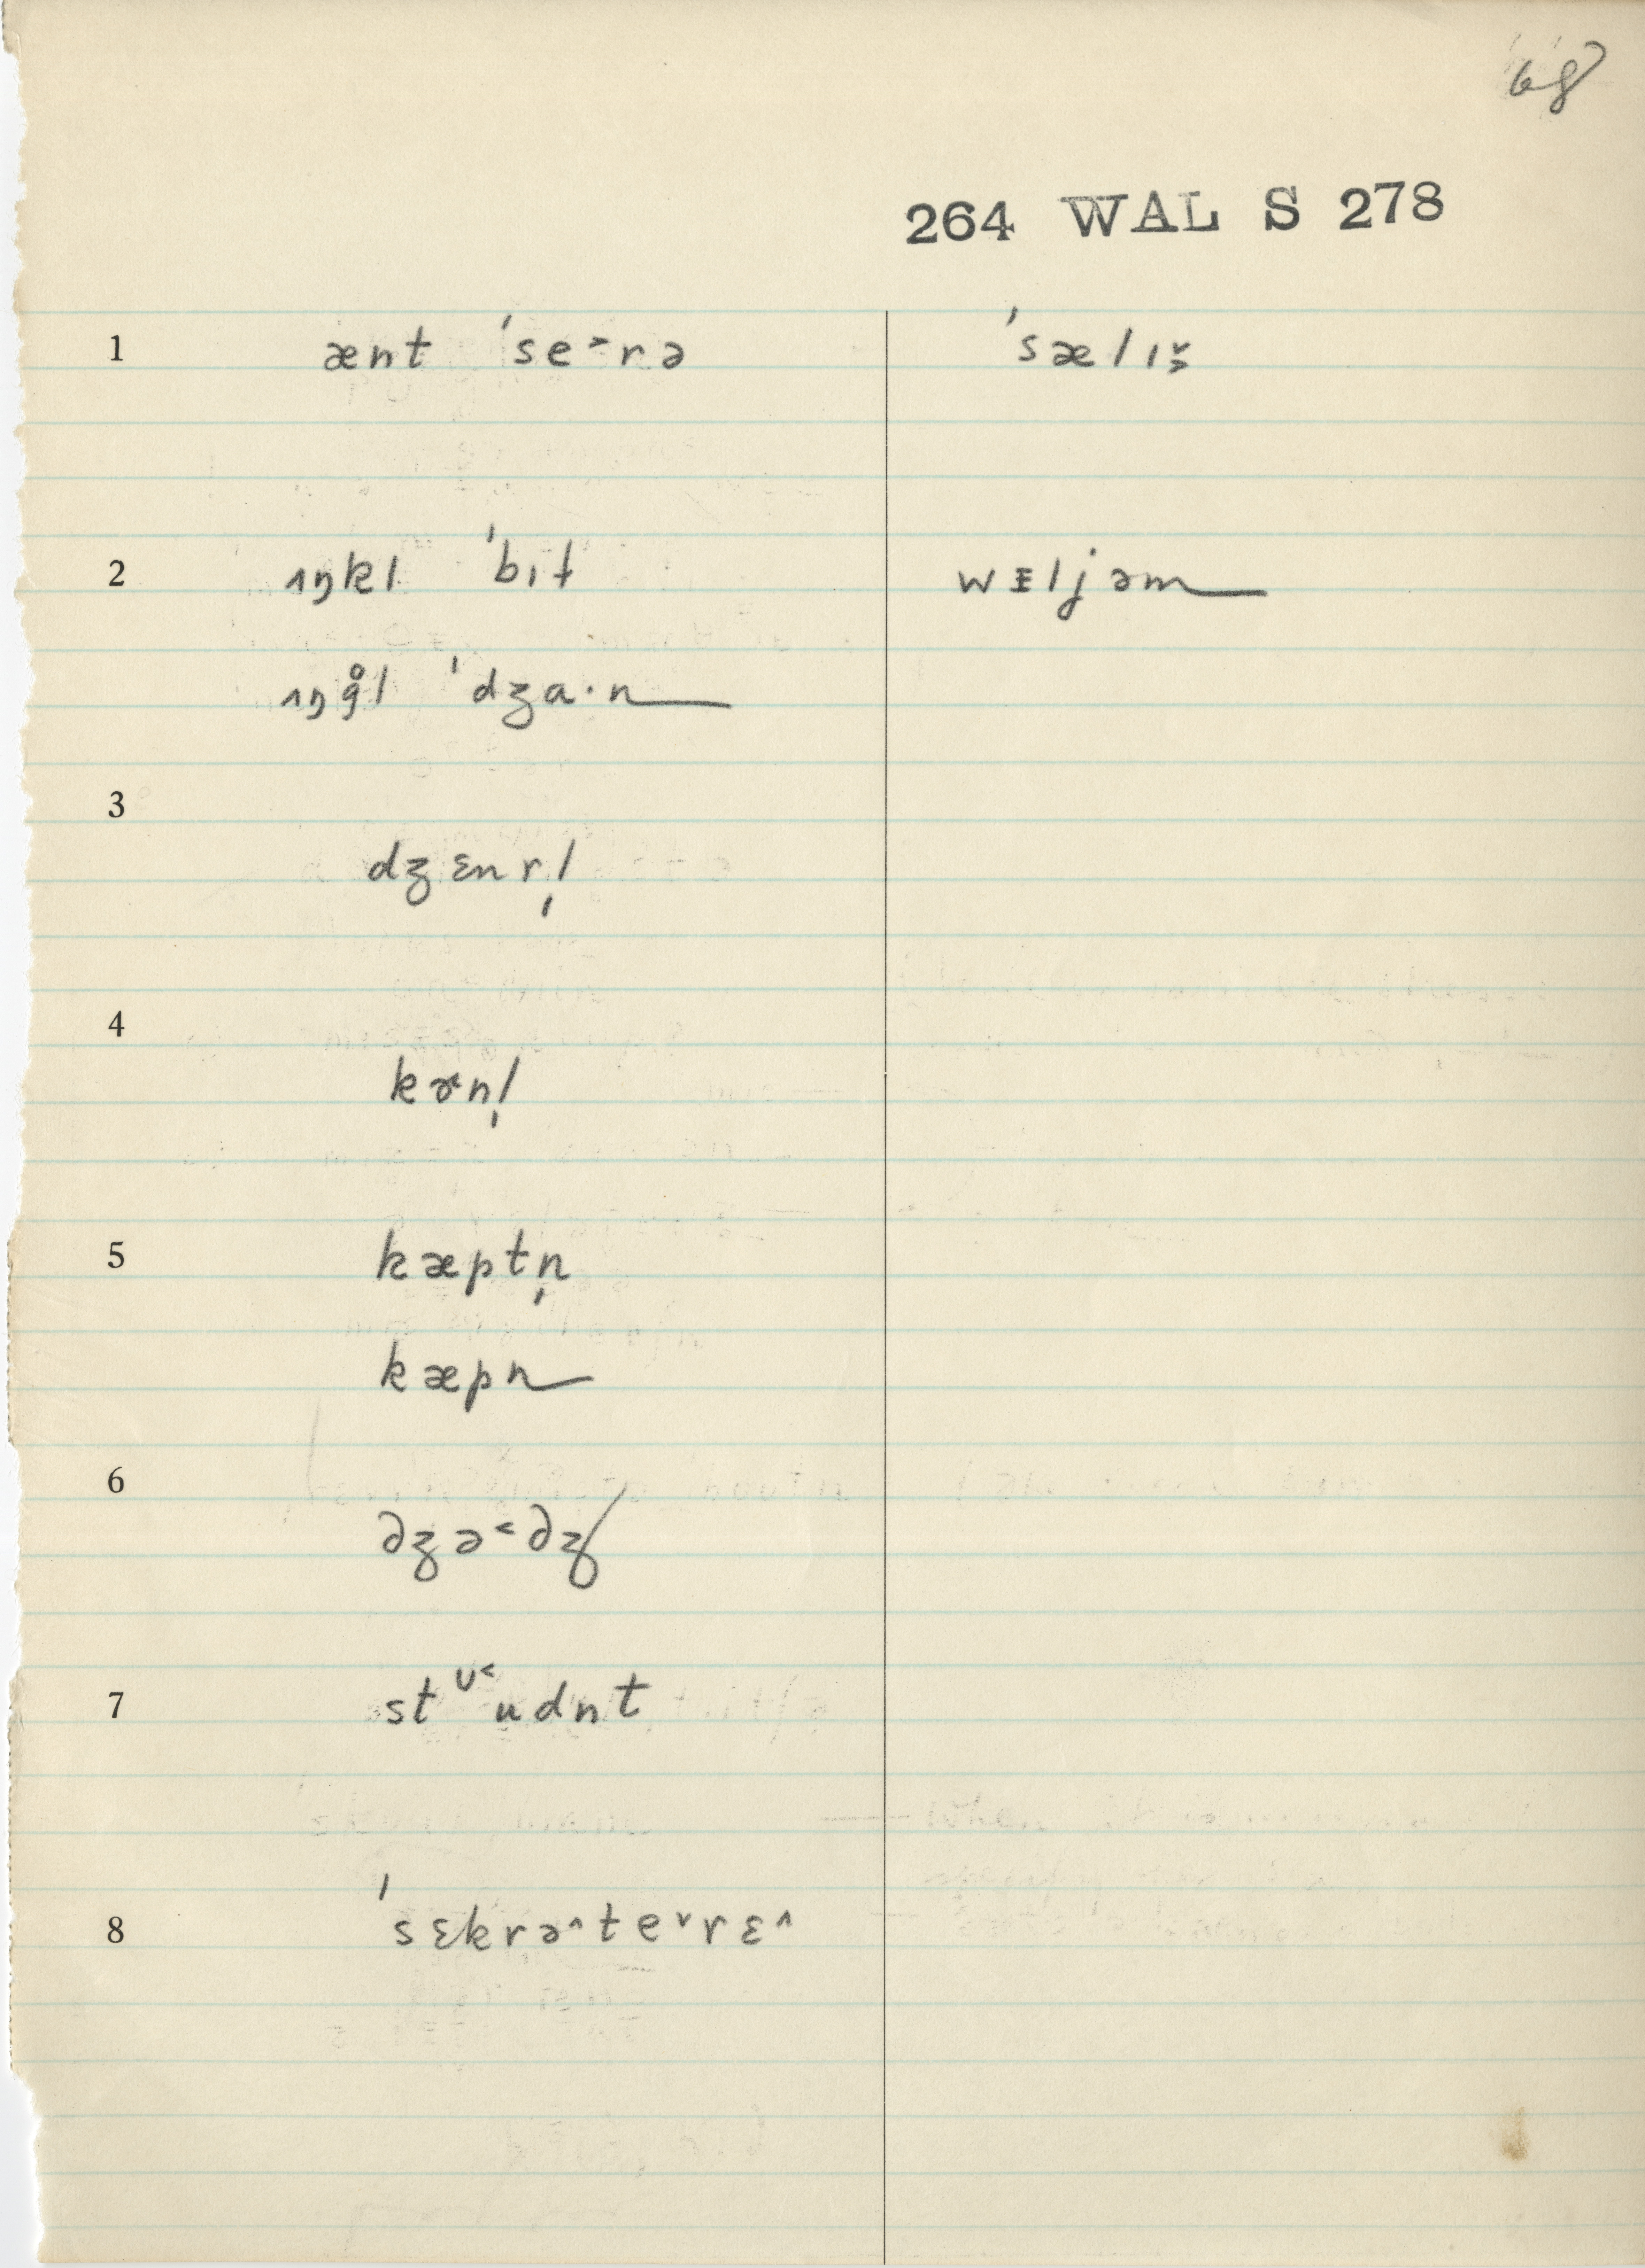 68
264 WAL S 278
1 ænt ˈse˃rə ˈsælɪš̬
2 ʌŋkl ˈbɪt wɪljəm
ʌŋg̊l ˈdʒa·n
3 dʒɛnrl̩
4 kɚnl̩
5 kæptn̩
kæpn
6 dʒə˂dʒ
7 stᶸ˂udnt
8 ˈsɛkrə˄te˅rɛ˄